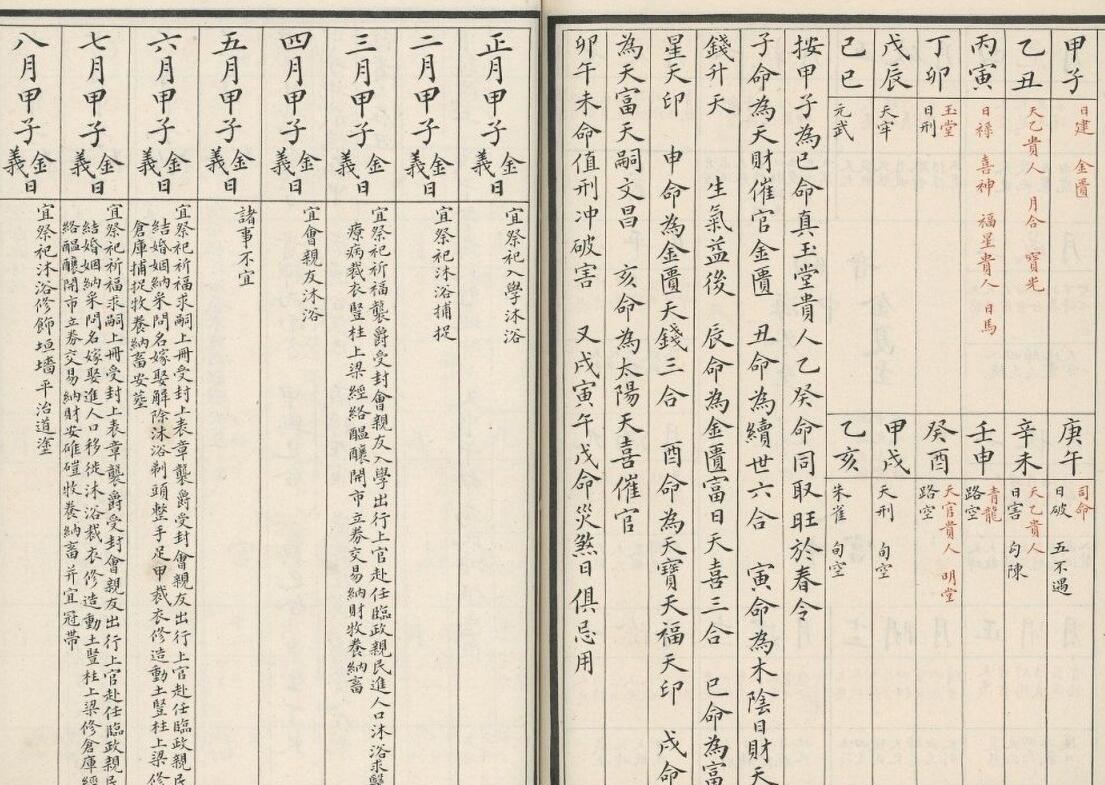 甲子
日建 金匱
乙丑
天乙貴人 月合 寶光
丙寅
日祿 喜神 福星貴人 日馬
丁卯
玉堂
日刑
戊辰
天牢
己巳
元武
庚午
司命
日破 五不遇
辛未
天乙貴人
日害 勾陳
壬申
青龍
路空
癸酉
天官貴人 明堂
路空
甲戌
天刑 旬空
乙亥
朱雀 旬空
按甲子為巳命真玉堂貴人乙癸命同取旺於春令
子命為天財催官金匱 丑命為續世六合 寅命為木陰日財天
錢升天 生氣益後 辰命為金匱富日天喜三合 巳命為富
星天印 申命為金匱天錢三合 酉命為天寶天福天印 戌命
為天富天嗣文昌 亥命為太陽天喜催官
卯午未命值刑冲破害 又戌寅午戊命災煞日俱忌用
正月甲子
金
義日
宜祭祀入學沐浴
二月甲子
金
義日
宜祭祀沐浴捕捉
三月甲子
金
義日
宜祭祀祈福襲爵受封會親友入學出行上官赴任臨政親民進人口沐浴求醫
療病裁衣豎柱上梁經絡醞釀開市立券交易納財牧養納畜
四月甲子
金
義日
宜會親友沐浴
五月甲子
金
義日
諸事不宜
六月甲子
金
義日
宜祭祀祈福求嗣上冊受封上表章襲爵受封會親友出行上官赴任臨政親民
結婚姻納采問名嫁娶解除沐浴剃頭整手足甲裁衣修造動土豎柱上梁修
倉庫捕捉牧養納畜安葬
七月甲子
金
義日
宜祭祀祈福求嗣上冊受封上表章襲爵受封會親友出行上官赴任臨政親民
結婚姻納采問名嫁娶進人口移徙沐浴裁衣修造動土豎柱上梁修倉庫經
絡醞釀開市立券交易納財安碓磑牧養納畜
八月甲子
金
義日
宜祭祀沐浴修飾垣墻平治道塗
并宜冠帶